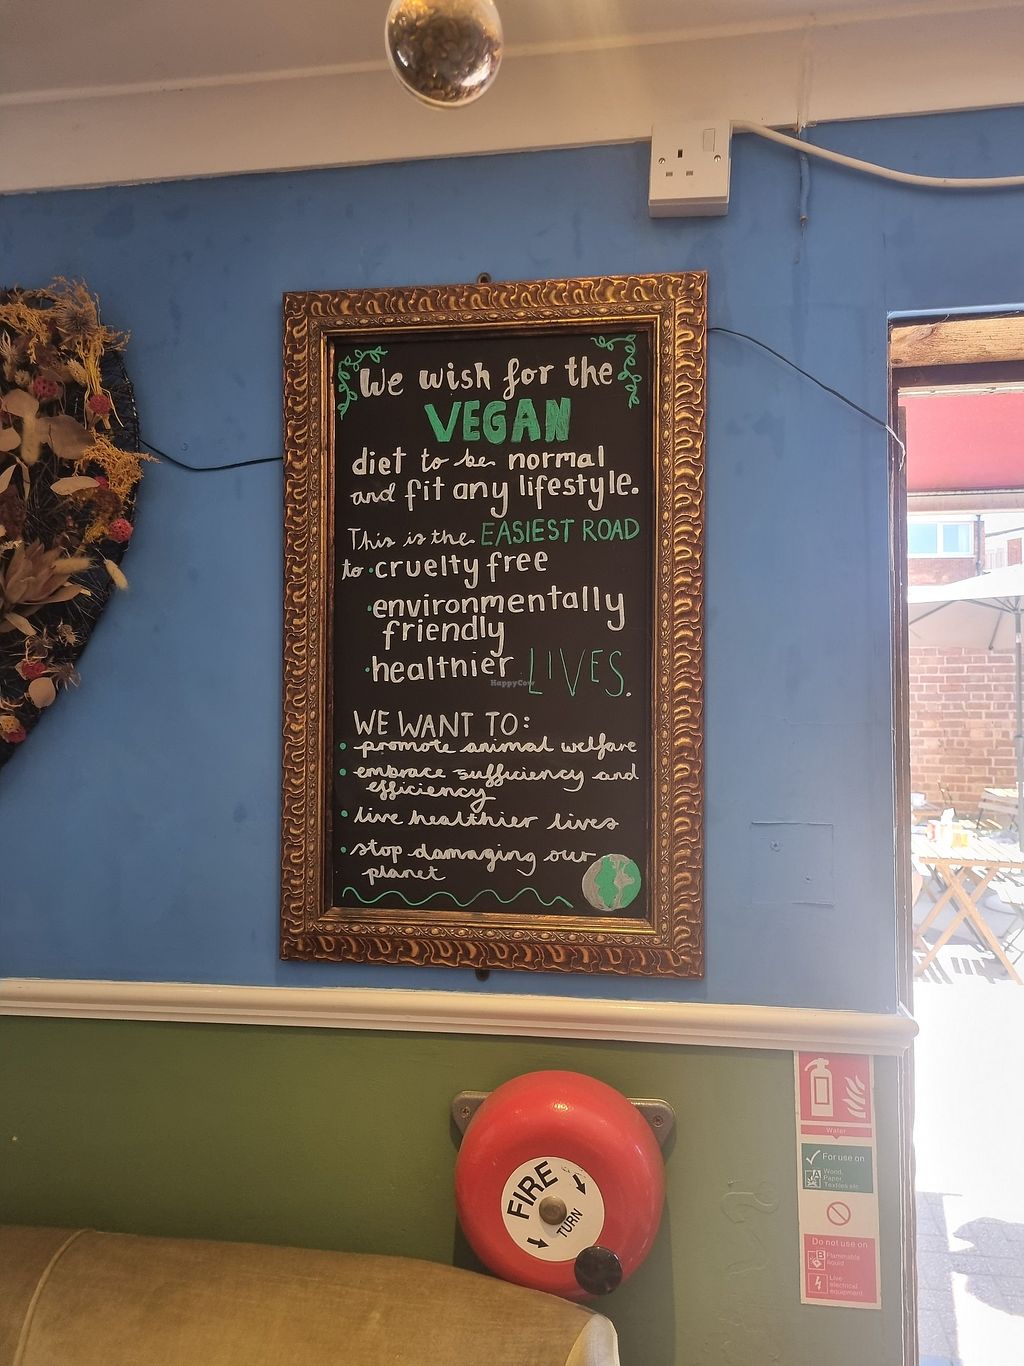 We wish for the
VEGAN
diet to be normal
and fit any lifestyle.
This is the EASIEST ROAD
to • cruelty free
• environmentally
friendly
• healthier LIVES.
HappyCow
WE WANT TO:
• promote animal welfare
• embrace sufficiency and
efficiency
• live healthier lives
• stop damaging our
planet
FIRE
TURN
Water
For use on
A
Wood,
Paper,
Textiles etc
Do not use on
B
Flammable
liquid
Live
electrical
equipment